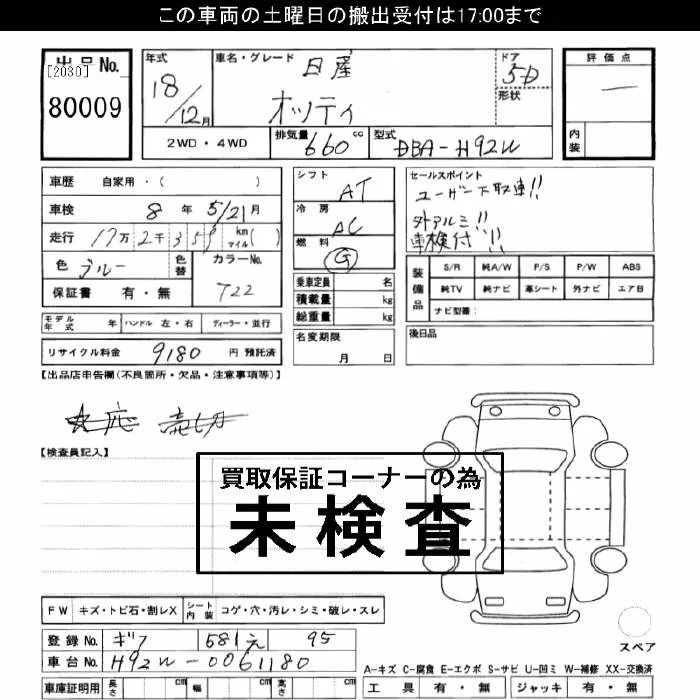 この車両の土曜日の搬出受付は17:00まで
出品No.
[2030]
80009
年式
18/12月
車名・グレード
日産
オッティ
ドア
5D
形状
2WD・4WD
排気量 660 cc
型式 DBA-H92W
評価点
内装
車歴 自家用・( )
車検 8年 5/21月
走行 17万2千3 5 km マイル( )
色 ブルー
色替
カラーNo.
722
保証書 有・無
シフト AT
冷房 AC
燃料 G
乗車定員 名
積載量 kg
総重量 kg
名変期限 月 日
セールスポイント
ユーザー下取車!!
外アルミ!!
車検付!!
装備品
S/R 純A/W P/S P/W ABS
純TV 純ナビ 革シート 外ナビ エアB
ナビ型番:
後日品
モデル年式 年 ハンドル 左・右 ディーラー・並行
リサイクル料金 9180 円 預託済
【出品店申告欄(不良箇所・欠品・注意事項等)】
【検査員記入】
買取保証コーナーの為
未検査
FW キズ・トビ石・割レX シート内装 コゲ・穴・汚レ・シミ・破レ・スレ
登録No. ギフ 581 え 95
車台No. H92W-0061180
車庫証明用 長さ cm 幅 cm 高さ cm
スペア
A-キズ C-腐食 E-エクボ S-サビ U-凹ミ W-補修 XX-交換済
工具 有・無 ジャッキ 有・無